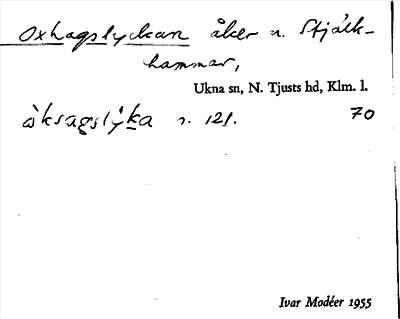 Oxhagslyckan åker u. Stjälk-
hammar,
Ukna sn, N. Tjusts hd, Klm. l.
òksagslỳka r. 121. 70
Ivar Modéer 1955